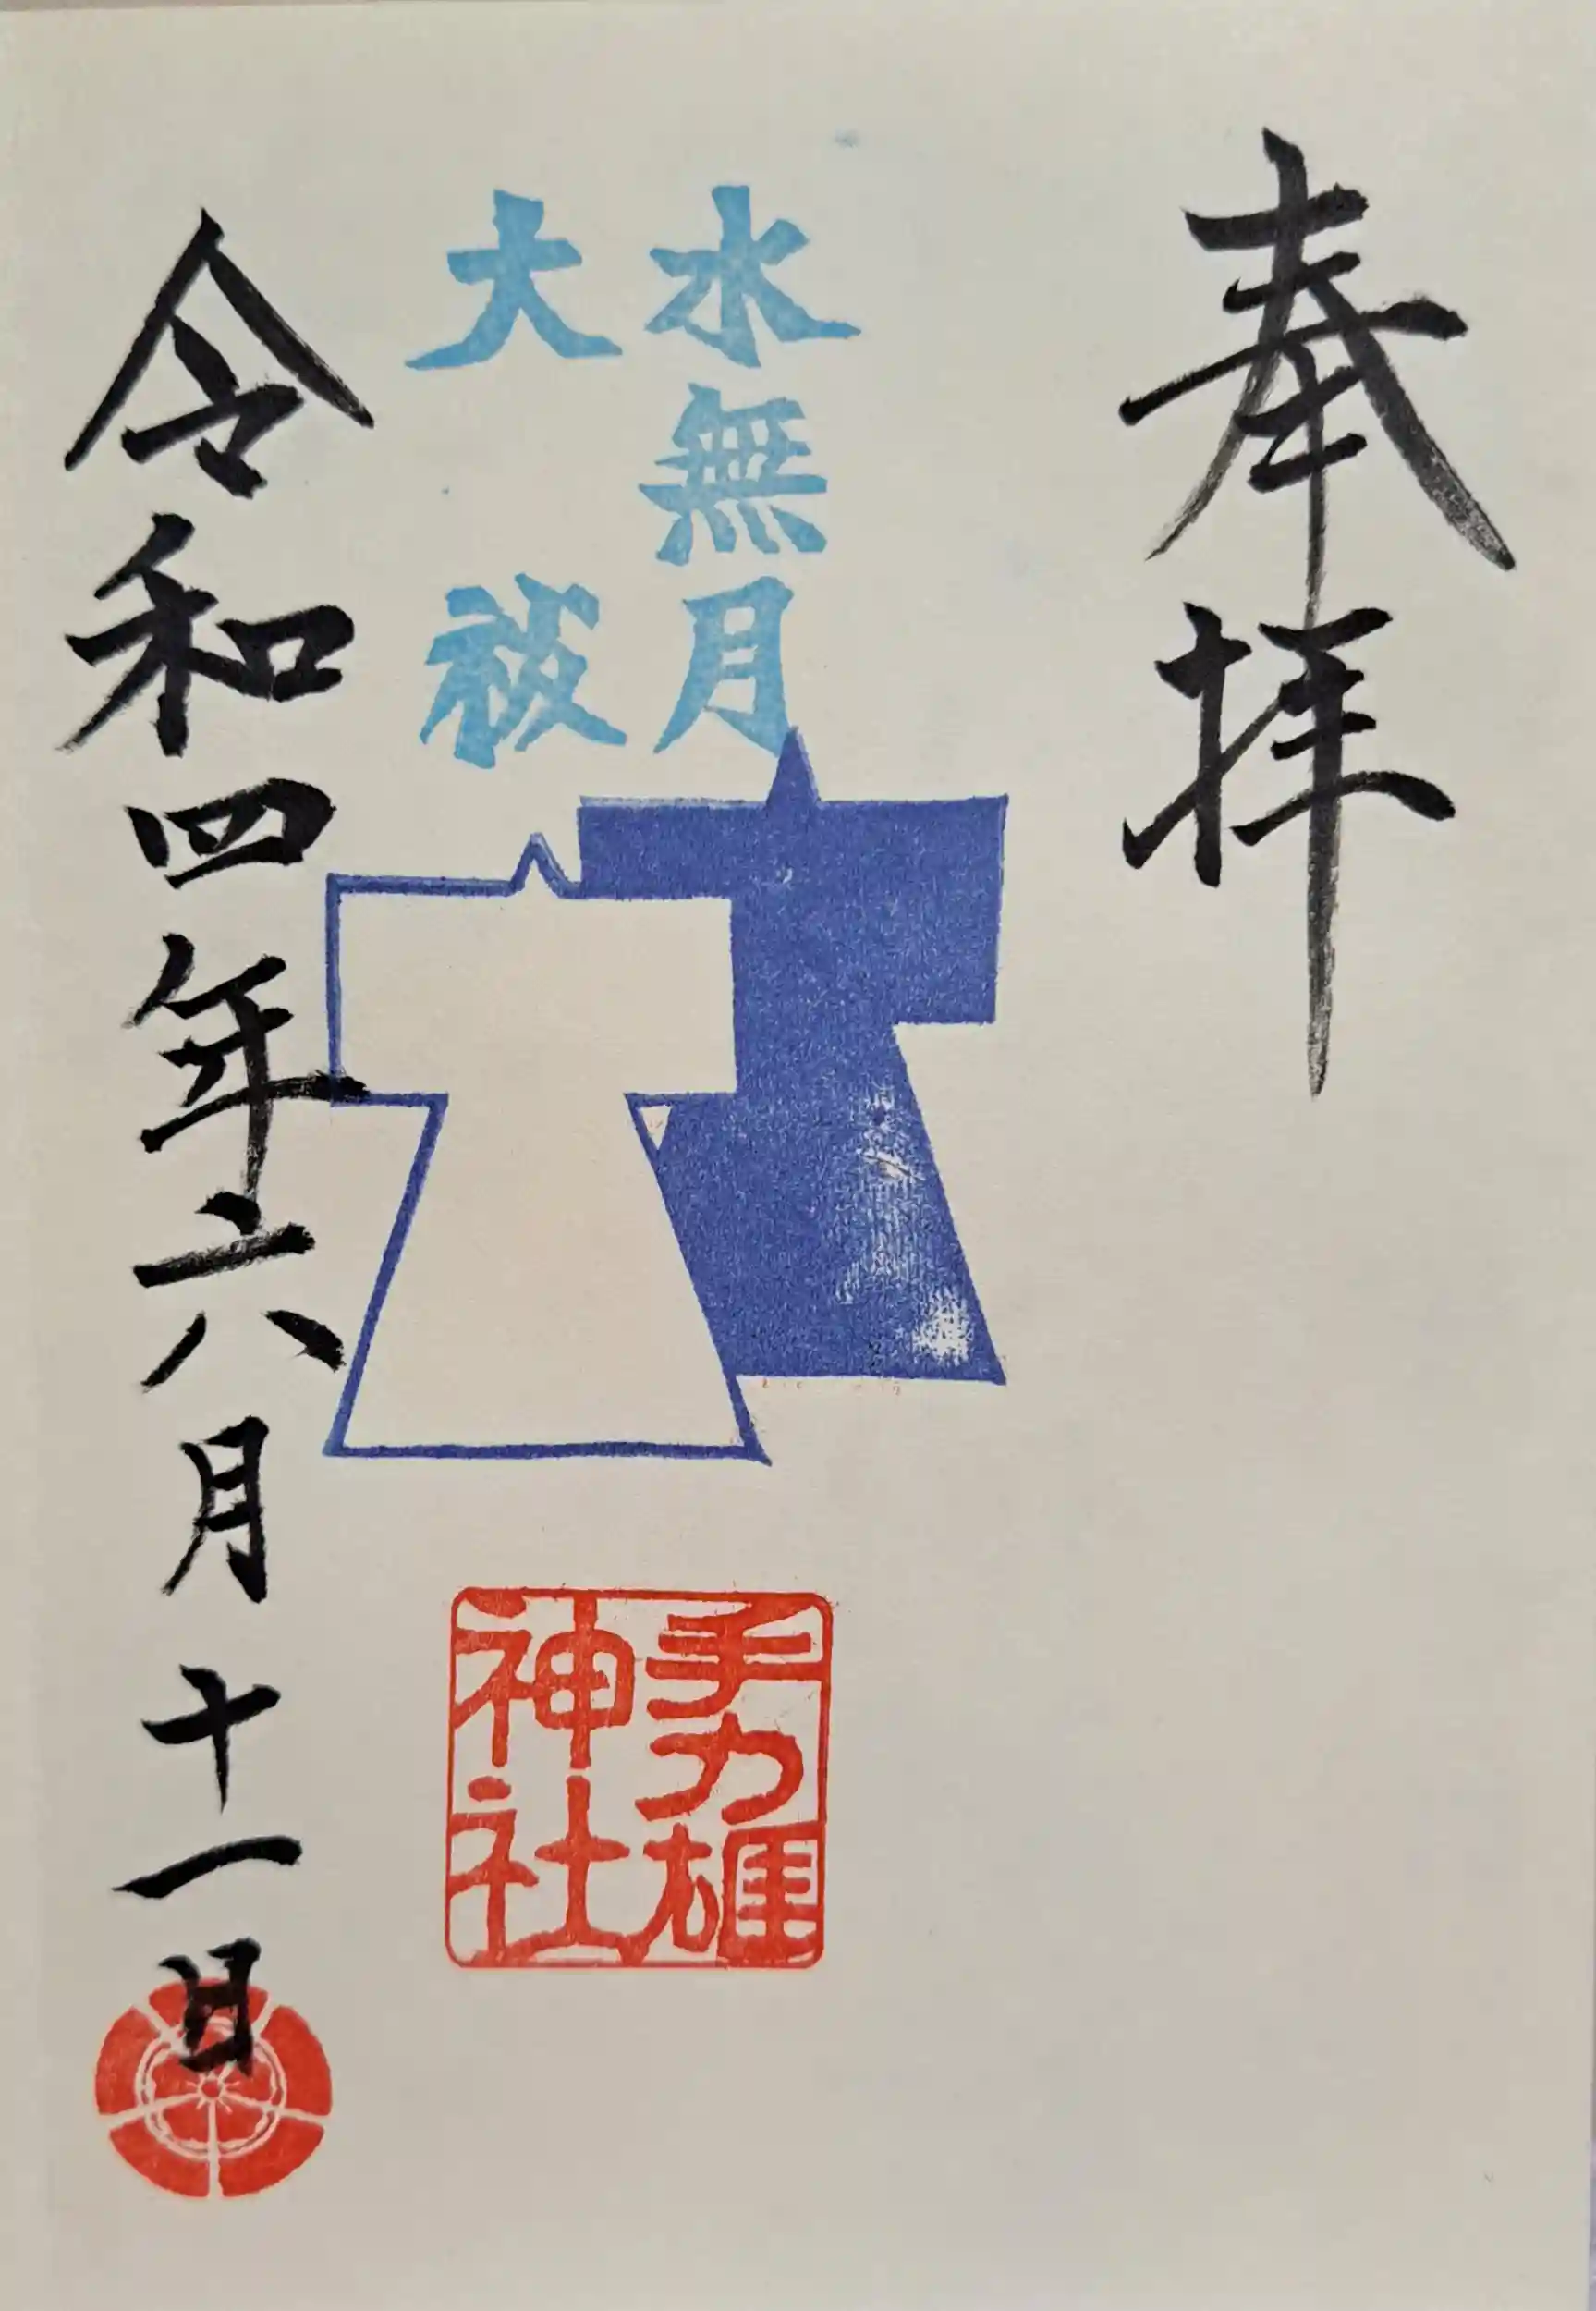 奉拝
水無月
大祓
手力雄
神社
令和四年六月十一日